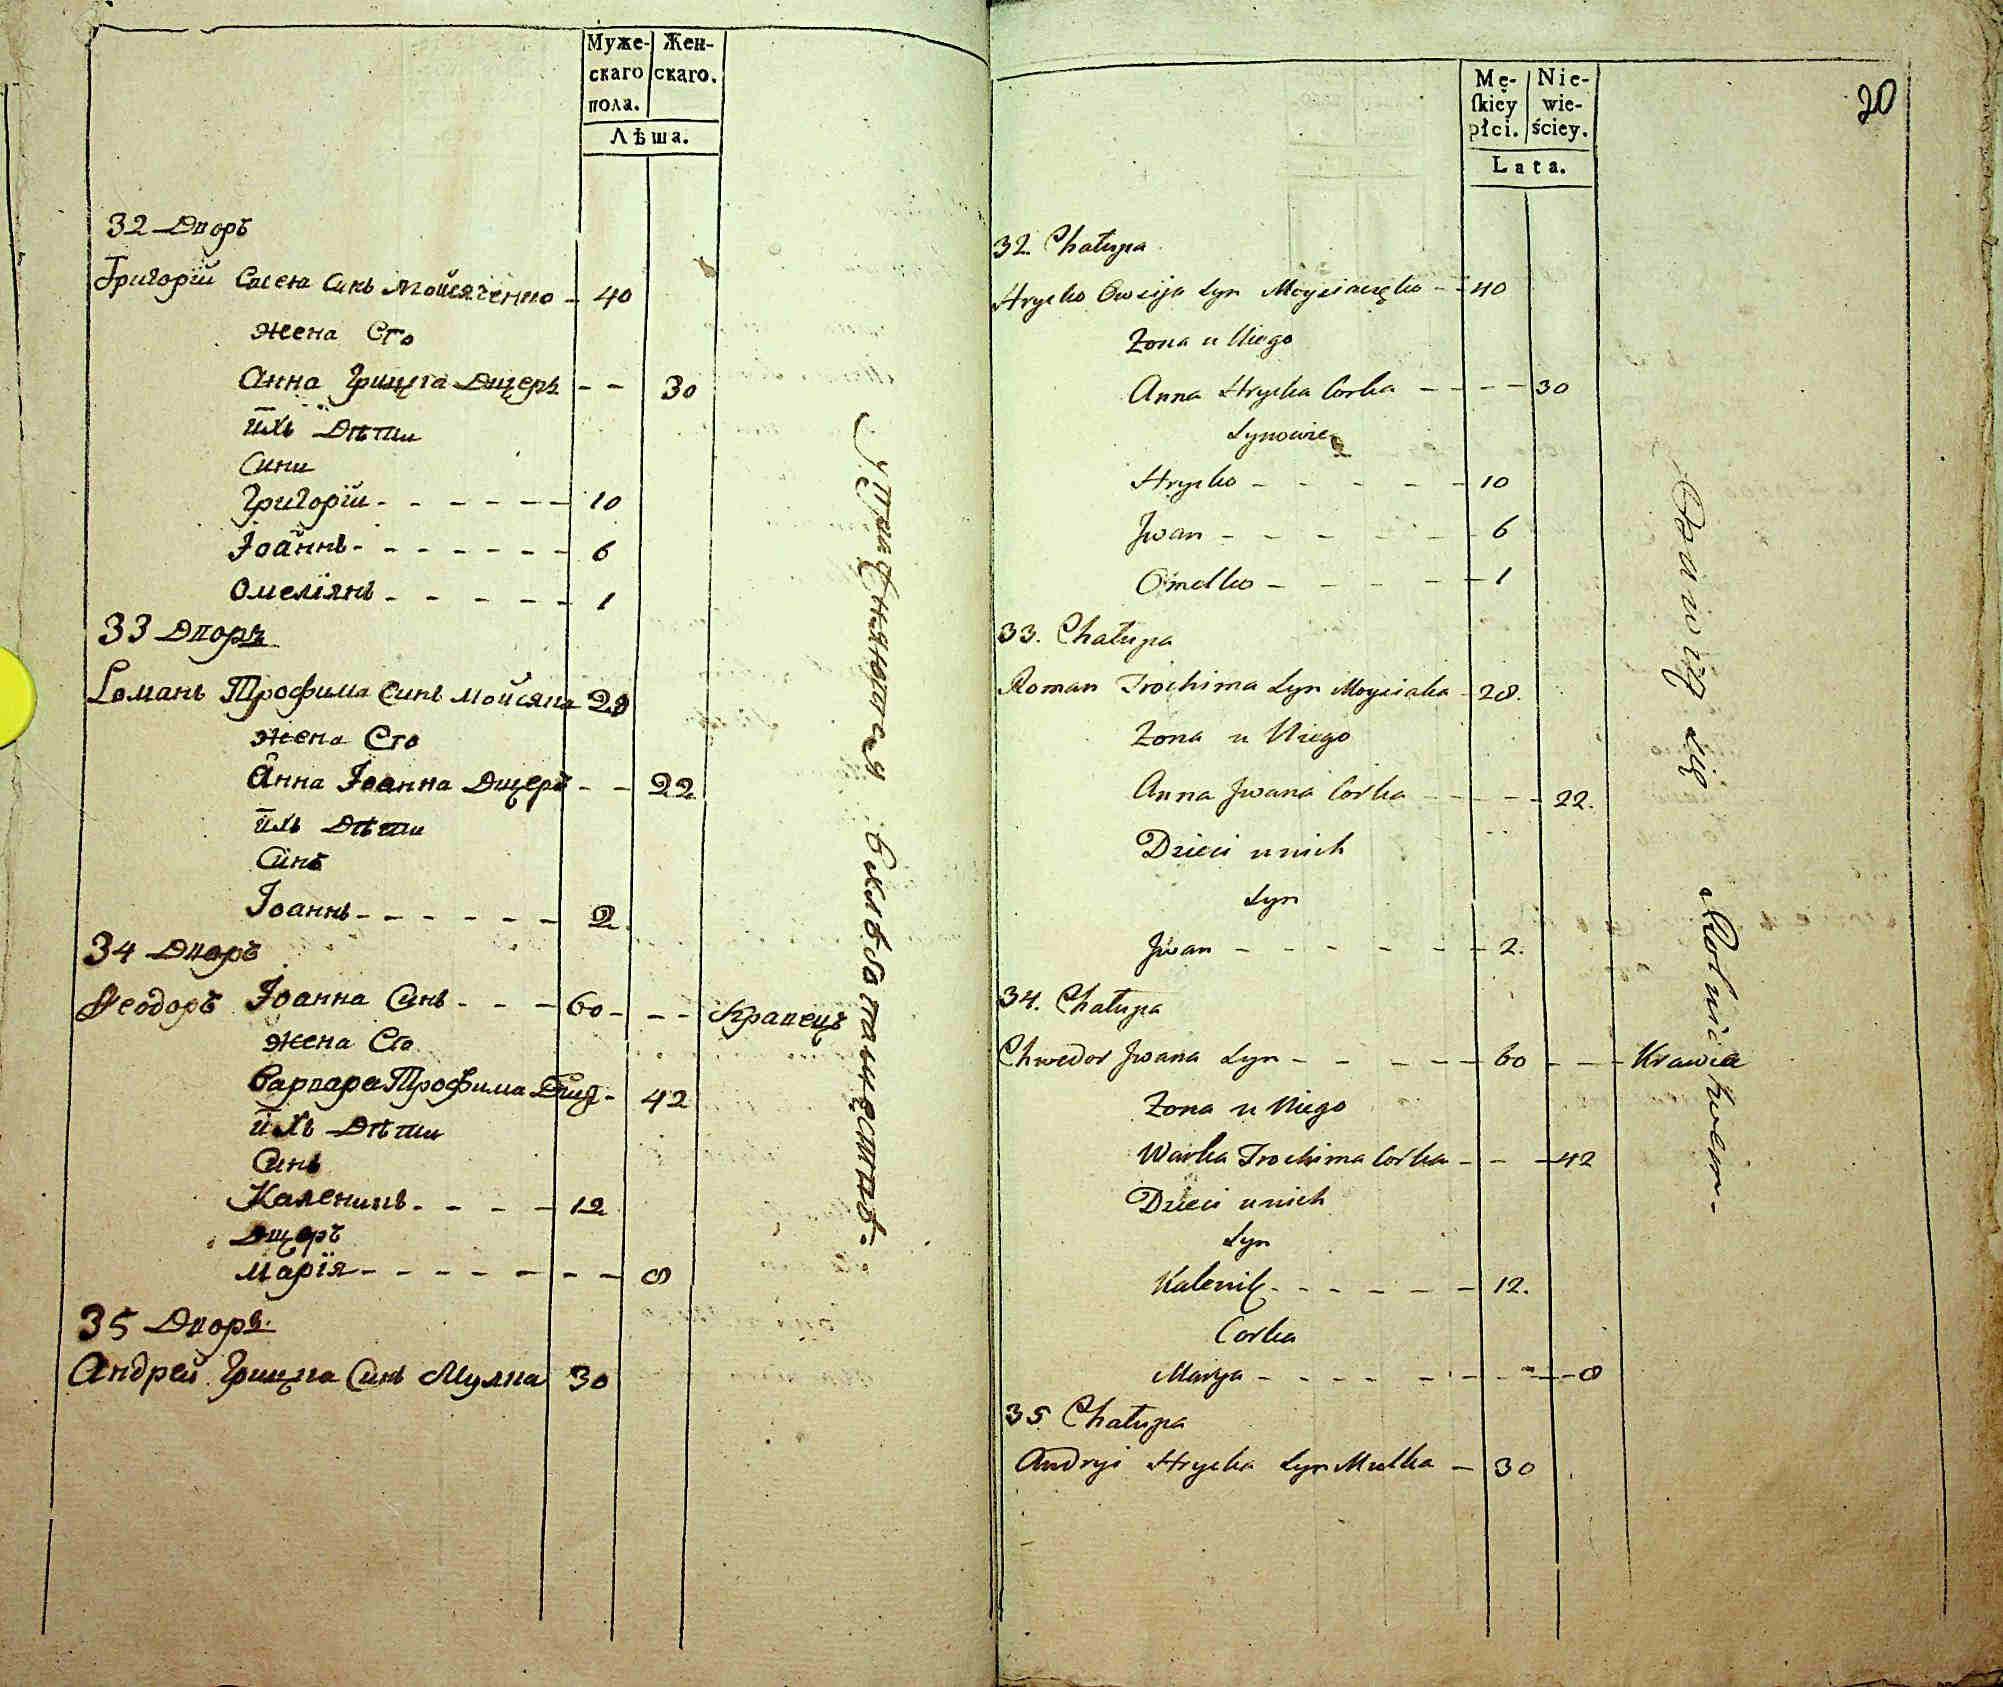 Муже-
скаго
пола.
Жен-
скаго.
Лѣта.
32 Дворъ
Григорій Евсея Синъ Мойсяченко - 40
жена Его
Анна Грицка Дщерь - - 30
ихъ Дѣти
Сини
Григорій - - - - - - 10
Іоаннъ - - - - - - 6
Омеліянъ - - - - - 1
33 Дворъ
Романъ Трофима Синъ Мойсяка 28
жена Его
Анна Іоанна Дщерь - - 22
ихъ Дѣти
Синъ
Іоаннъ - - - - - - 2
34 Дворъ
Ѳеодоръ Іоанна Синъ - - - 60 - - - Кравецъ
жена Его
Варвара Трофима Дщ. - 42
ихъ Дѣти
Синъ
Каленикъ - - - - 12
Дщерь
Марія - - - - - - - 8
35 Дворъ
Андрей Грицка Синъ Мулка 30
Упражняются въ хлѣбопашествѣ.
20
Mę-
skiey
płci.
Nie-
wie-
ściey.
Lata.
32. Chałupa
Hrycko Owsija Syn Moysiaczęko - - 40
Zona u Niego
Anna Hrycka Corka - - - - 30
Synowie
Hrycko - - - - - 10
Jwan - - - - - - 6
Omelko - - - - - 1
33. Chałupa
Roman Trochima Syn Moysiaka - 28.
Zona u Niego
Anna Jwana Corka - - - - 22.
Dzieci u nich
Syn
Jwan - - - - - - 2.
34. Chałupa
Chwedor Jwana Syn - - - - - 60 - - - Krawiec
Zona u Niego
Warka Trochima Corka - - - 42
Dzieci u nich
Syn
Kalenik - - - - - - 12.
Corka
Marya - - - - - - - - - 8
35 Chałupa
Andryi Hrycka Syn Mulka - 30
Bawią się Rolnictwem -